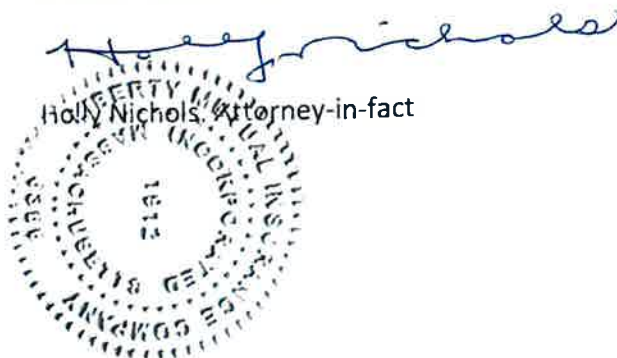 Holly Nichols
Holly Nichols, Attorney-in-fact
LIBERTY MUTUAL INSURANCE COMPANY
INCORPORATED MASSACHUSETTS
1912